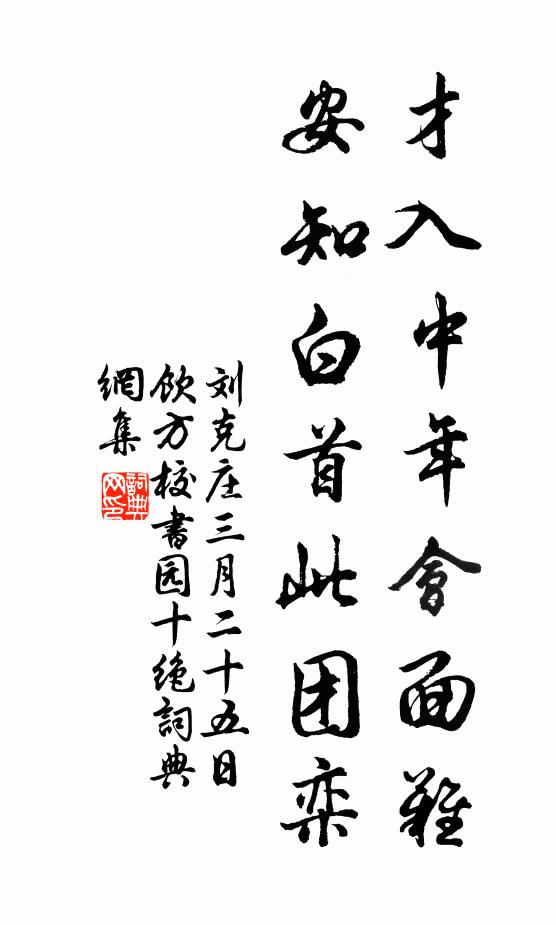 才入中年會面難
安知白首此团栾
刘克庄三月二十五日
饮方校書园十绝詞典
網集
詞典
网印